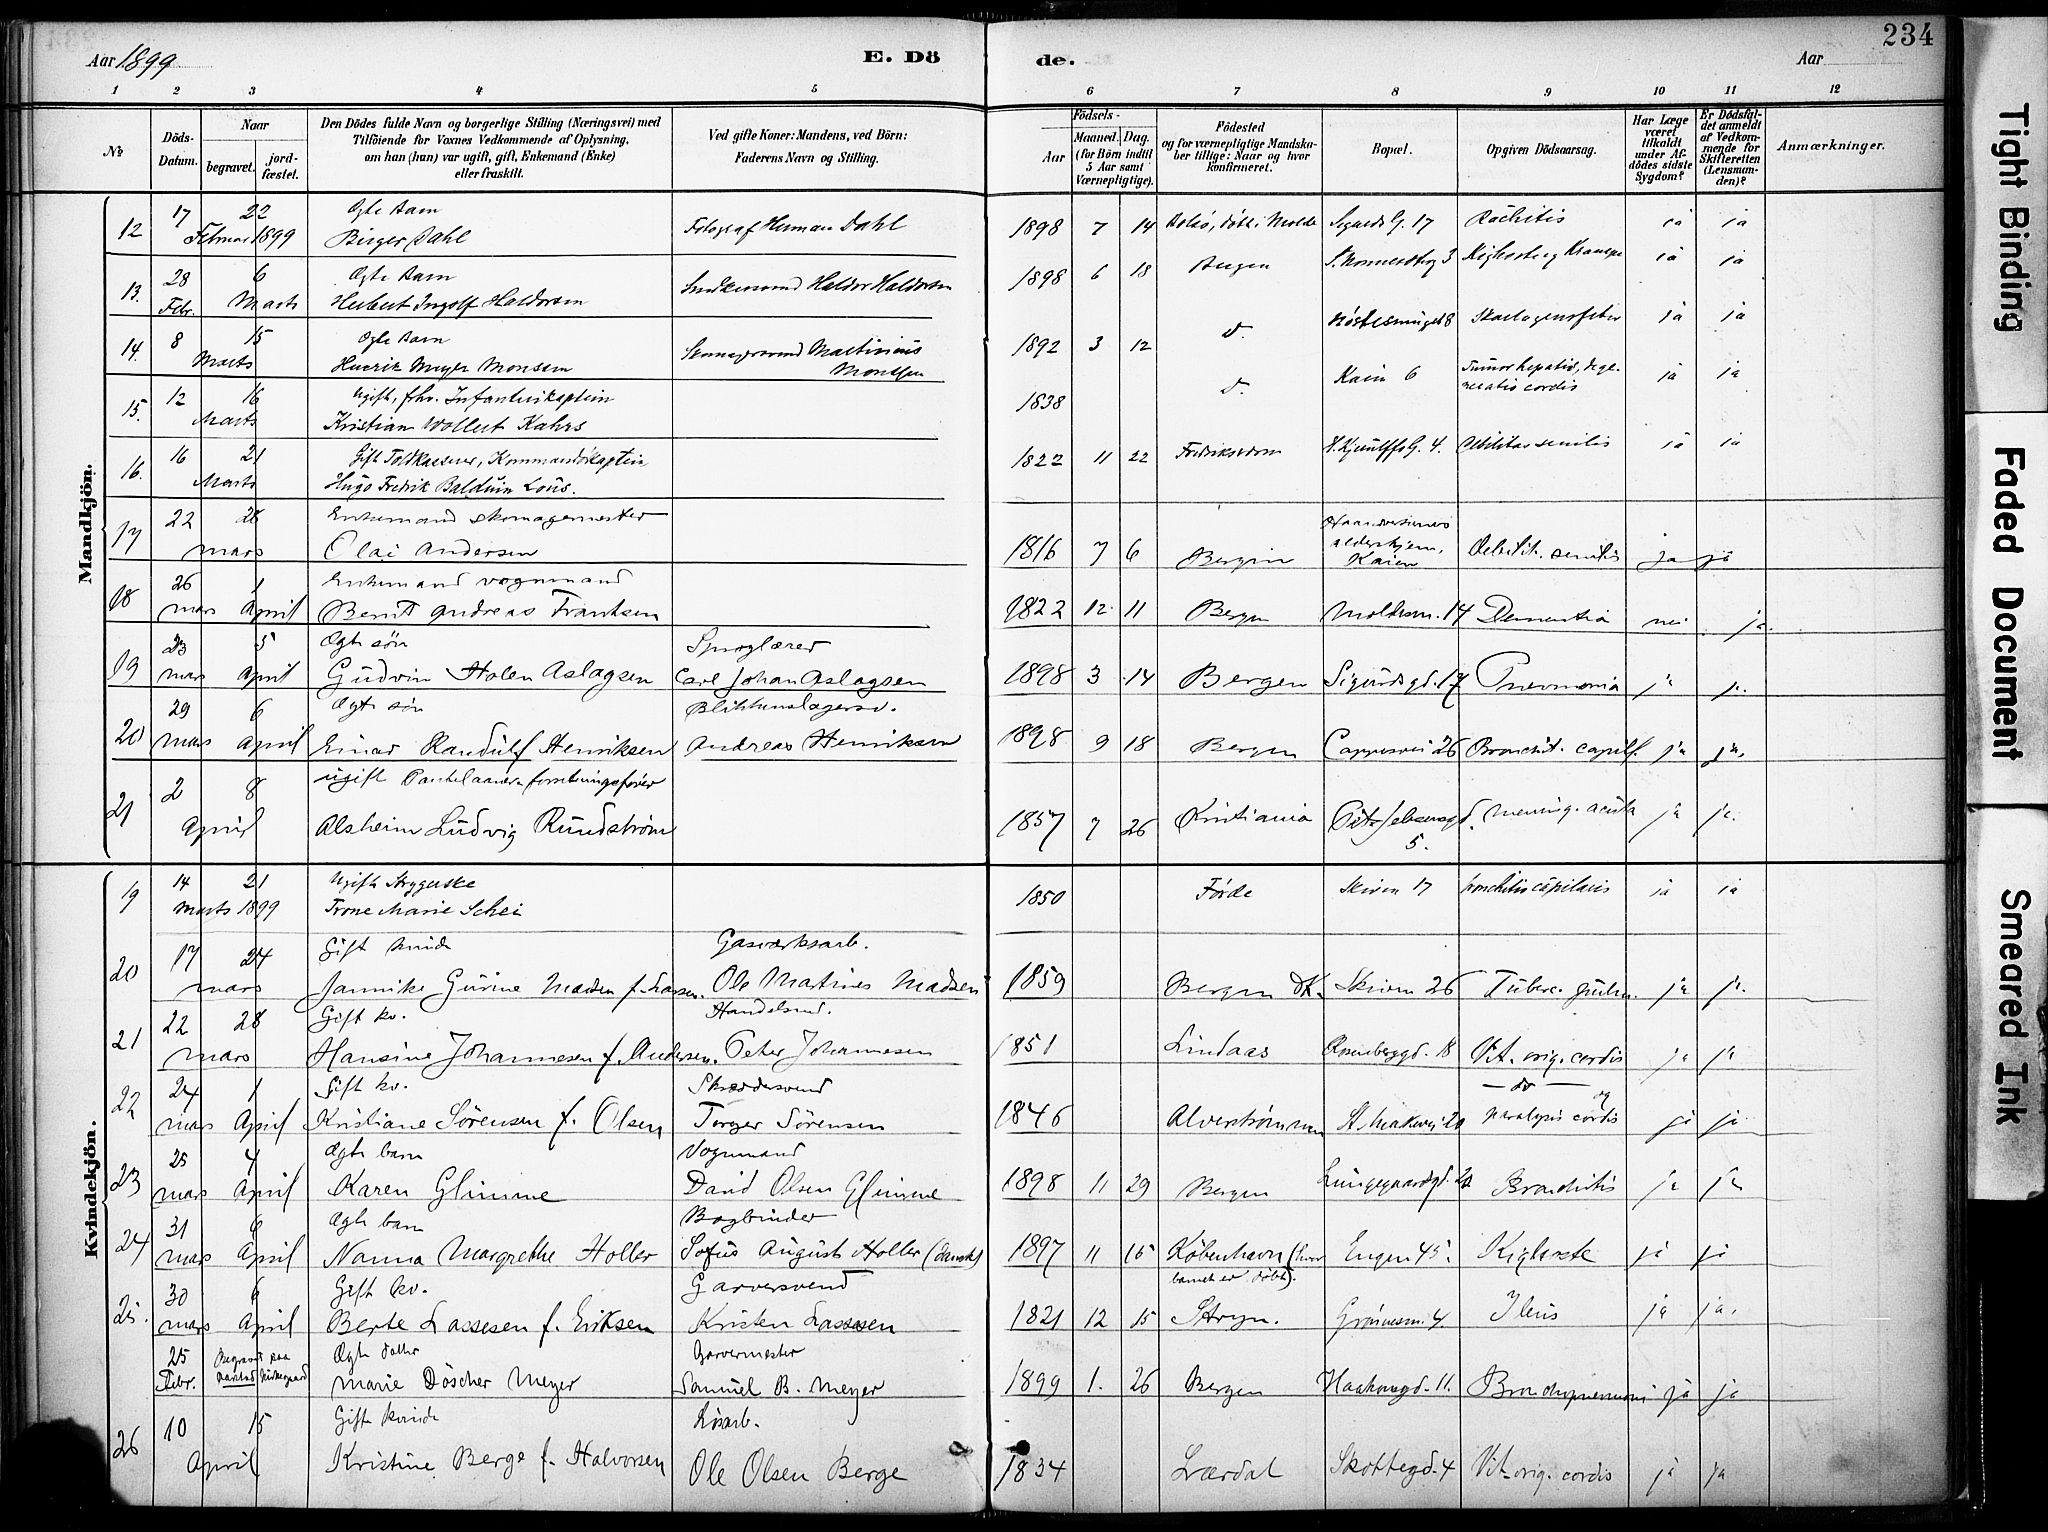 234
Aar 1899
E. Dö
de.
Aar
1 2 3 4 5 6 7 8 9 10 11 12
№
Döds-Datum.
Naar
begravet.
jordfæstet.
Den Dödes fulde Navn og borgerlige Stilling (Næringsvei) med
Tilföiende for Voxnes Vedkommende af Oplysning,
om han (hun) var ugift, gift, Enkemand (Enke)
eller fraskilt.
Ved gifte Koner: Mandens, ved Börn:
Faderens Navn og Stilling.
Födsels-
Aar
Maaned. Dag.
(for Börn indtil
5 Aar samt
Værnepligtige).
Födested
og for værnepligtige Mandska-
ber tillige: Naar og hvor
konfirmeret.
Bopæl.
Opgiven Dödsaarsag.
Har Læge
været
tilkaldt
under Af-
dödes sidste
Sygdom?
Er Dödsfal-
det anmeldt
af Vedkom-
mende for
Skifteretten
(Lensman-
den)?
Anmærkninger.
Mandkjön.
12 17 22 Ægte Barn
Februar 1899 Birger Dahl Fotograf Herman Dahl 1898 7 14 Sigurds G. 17 Rachitis ja ja
13. 28 6 Ægte Barn
Febr. Marts Herbert Ingolf Haldorsen Haldor Haldorsen 1898 6 18 Bergen ja ja
14. 8 15 Ægte Barn
Marts Henrik Meyer Monsen Martinius Monssen 1892 3 12 d. Skarlagensfeber ja ja
15. 12 16 Ugift, fhv. Infanterikaptein
Marts Kristian Wollert Kahrs 1838 d. Kaien 6 Tumor hepatis, dege-
neratio cordis ja ja
16. 16 21 Gift Toldkasserer, Kommandörkaptein
Marts Hugo Fredrik Balduin Lous. 1822 11 22 Fredriksværn 4. Debilitas senilis ja ja
17 22 28 Enkemand skomagermester
mars Olai Andersen 1816 7 6 Bergen Haandverkernes
aldershjem,
Kaien Debilit. senilis ja ja
18 26 1 Enkemand vognmand
mars April Bernt Andreas Frantsen 1822 12. 11 Bergen 14 Dementia nei ja.
19 23 5 Ægte søn Sproglærer
mars April Gudvin Holen Aslagsen Carl Johan Aslagsen 1898 3 14 Bergen Sigurdsgd. 17 Pneumonia ja ja.
20 29 6 Ægte søn Blikkenslagersv.
mars April Einar Randulf Henriksen Andreas Henriksen 1898 9 18 Bergen 26 Bronchit. capill. ja ja.
21 2 8 ugift Pantelaaner forretningsfører
April Alsheim Ludvig Rundström 1857 7 26 Kristiania Pet. Jebsensgd.
5. Mening. acuta ja ja.
Kvindekjön.
19 14 21 Ugift Strygerske
Marts 1899 Trone Marie Schei 1850 Förde Skiven 17 bronchitis capilaris ja ja
20 17 24 Gift kvinde Gasværksarb.
mars Jannike Gurine Madsen f. Larsen. Ole Martines Madsen 1859 Bergen DK. Skiven 26 Tuberc. pulm. ja ja.
21 22 28 Gift kv. Handelsmd.
mars Hansine Johannesen f. Andersen. Peter Johannesen 1851 Lindaas Rosenberggd. 18 Vit. org. cordis ja ja
22 24 1 Gift kv. Skræddersvend
mars April Kristiane Sörensen f. Olsen Torger Sörensen 1846 Alverströmmen 20 — do — og
paralysis cordis ja ja
23 25 4 Ægte barn Vognmand
mars April Karen Glimme David Olsen Glimme 1898 11 29 Bergen Lungegaardsgd. Bronchitis ja ja
24 31 6 Ægte barn Bogbinder
mars April Nanna Margrethe Holler Sofus August Holler (dansk) 1897 11 15 Köbenhavn (hvor
barnet er döbt). Engen 45. Kighoste ja ja
25. 30 6 Gift kv. Garversvend
mars April Berte Lassesen f. Eriksen Kristen Lassesen 1821 12 15 Stryn. 4. Ileus ja ja.
25 Begravet paa Ægte datter Garvermester
Febr. Kirkegaard Marie Döscher Meyer Samuel B. Meyer 1899 1. 26 Bergen Haakonsgd. 11. Bronchopneumoni ja ja
26 10 15 Gift kvinde Løsarb.
April Kristine Berge f. Halvorsen Ole Olsen Berge 1834 Lærdal Skottegd. 4 Vit. org. cordis ja ja
Tight Binding
Faded Document
Smeared Ink